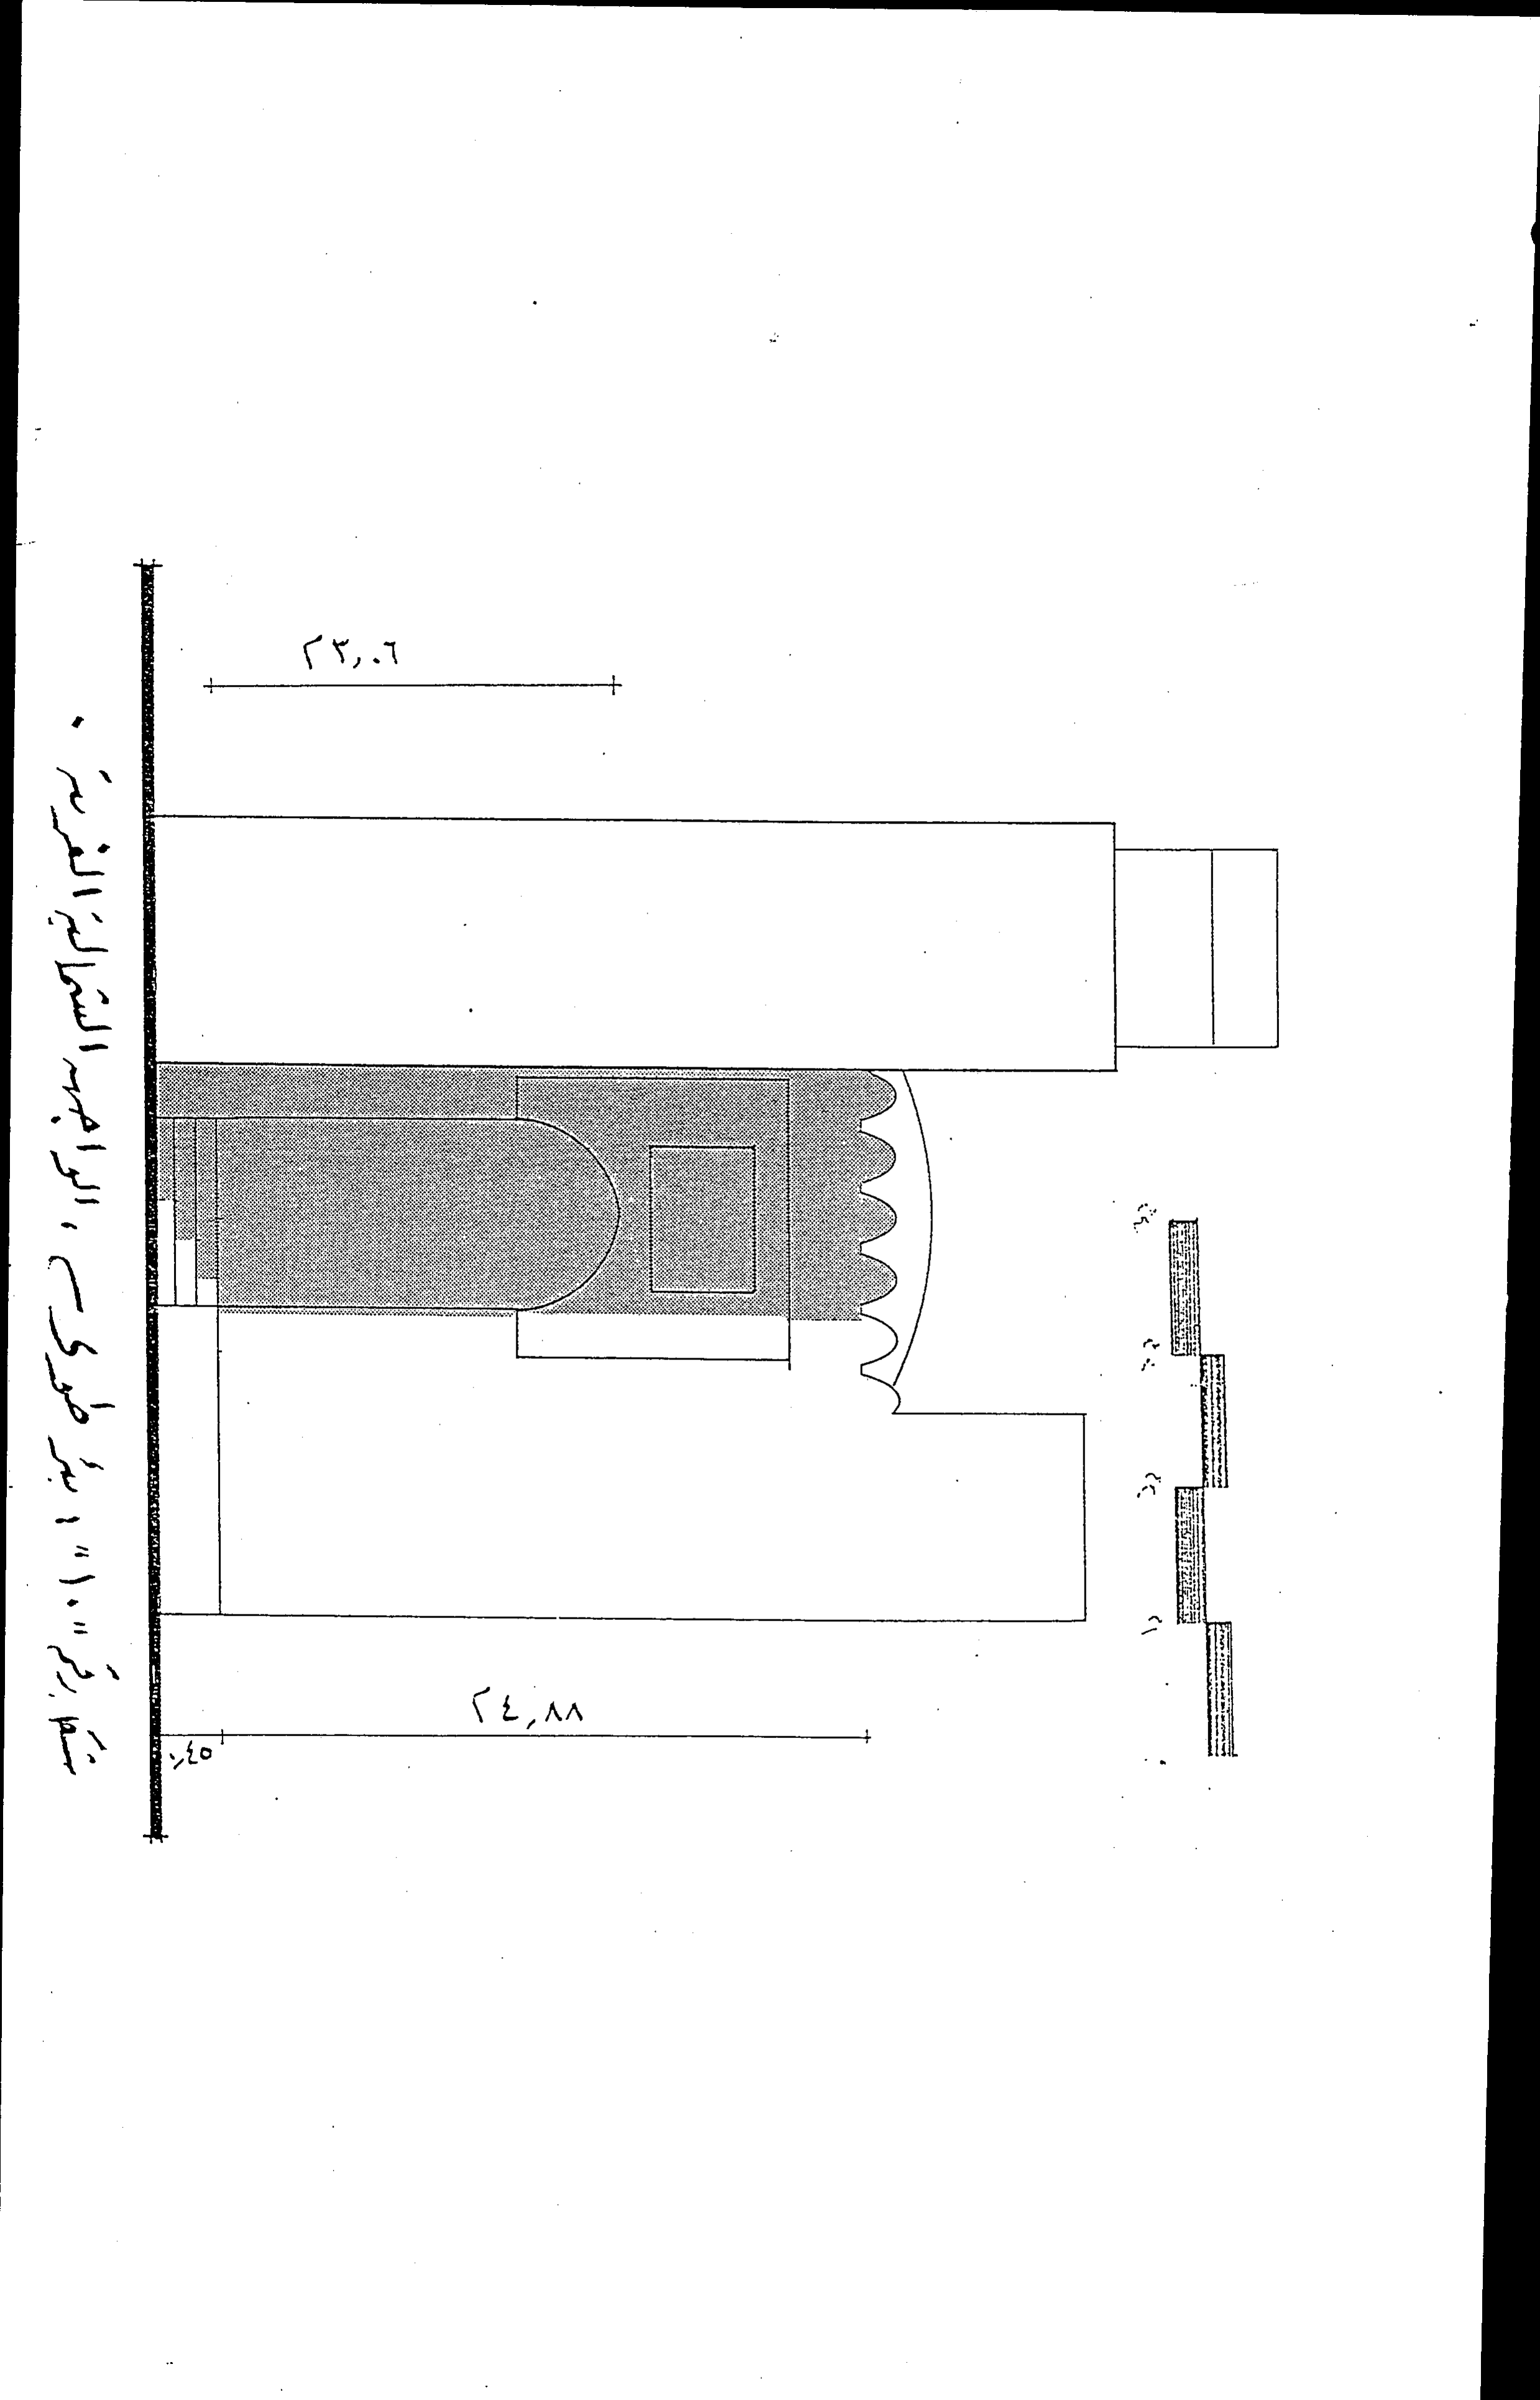 ٢٣,٠٦
٢٤,٨٨
٠,٤٥
شكل رقم "١٠" ، بئر طوى ، الواجهة الشمالية الغربية .